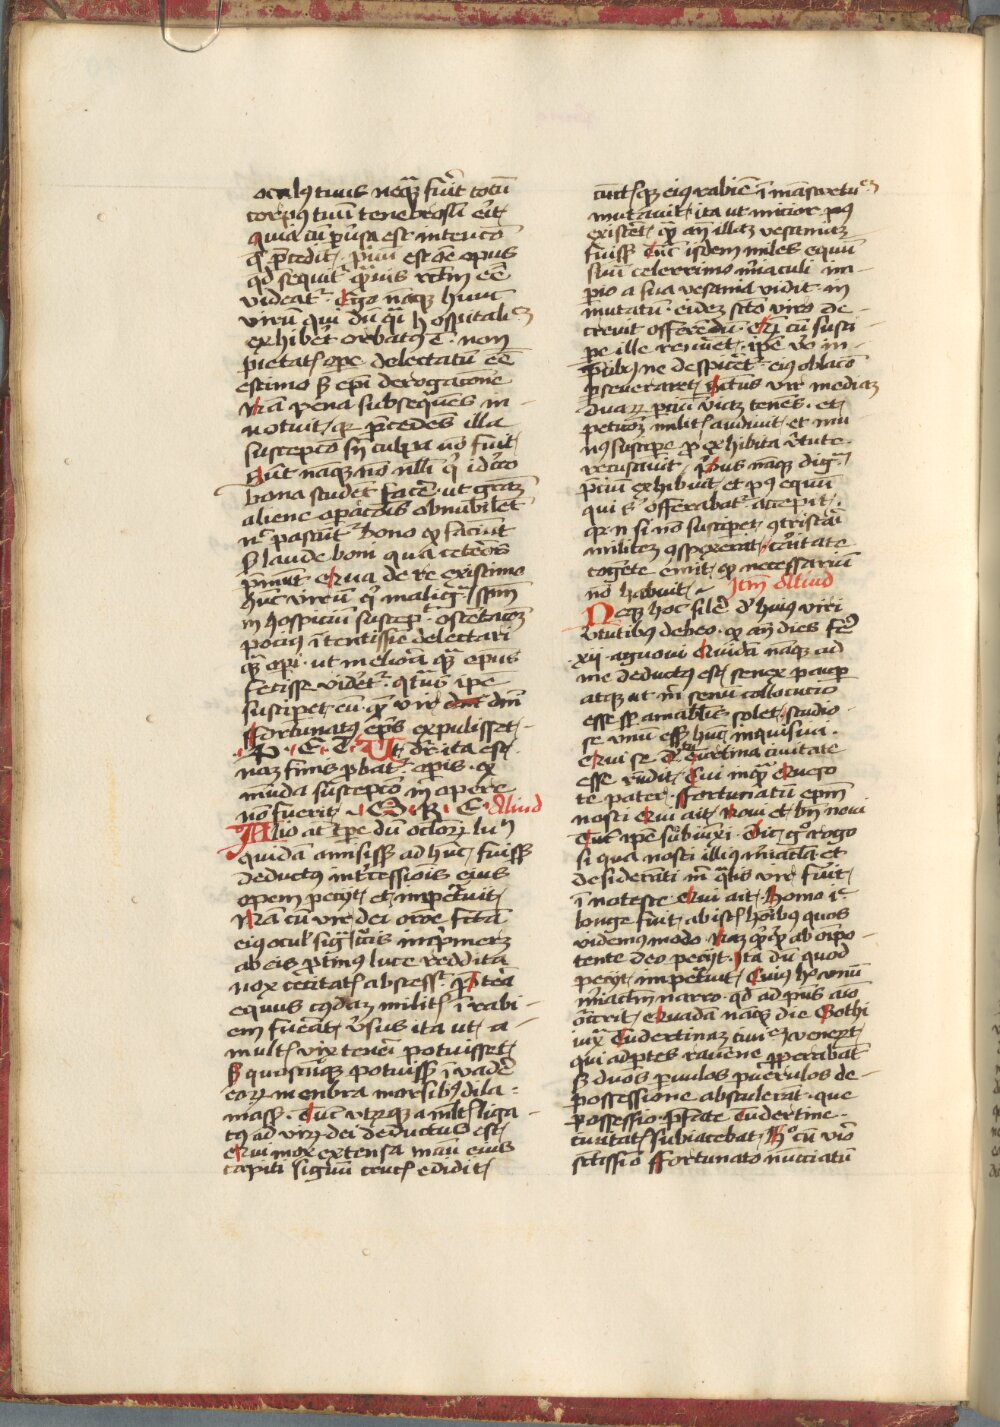 oculus tuus nequam fuerit totum
corpus tuum tenebrosum erit
quia cum peruersa est intentio
que precedit prauum est omne opus
quod sequitur quamuis rectum esse
videatur Ego namque hunc
virum qui dum quasi hospitalitatem
exhiberet orbatus est non
pietatis ope delectatum esse
estimo sed episcopi derogacione
Nam pena subsequens in-
notuit quia precedens illa
suscepcio sine culpa non fuit
Sunt namque nonnulli qui idcirco
bona student facere ut gratiam
aliene operacionis obnubilent
nec pascuntur bono quod faciunt
sed laude boni qua ceteros
premunt Qua de re existimo
hunc virum qui malignum spiritum
in hospicium suscepit ostentacioni
pocius intentissime delectari
quam operi ut meliora quam episcopus
fecisse videretur quatenus ipse
susciperet eum quem vir domini
Fortunatus episcopus expulisset
P E T Ut dicitur ita est
nam finis probat operis quod
munda suscepcio in opere
non fuerit G R E Aliud
Alio autem tempore dum oculorum lumen
quidam amisisset ad hunc fuisset
deductus intercessionis eius
opem peciit et impetrauit
Nam cum vir dei oracione facta
eius oculis signum crucis imprimeret
ab eis protinus luce reddita
nox cecitatis abscessit Preterea
equus cuiusdam militis in rabi-
em fuerat versus ita ut a
multis vix teneri potuisset
Sed quoscumque potuisset inuadere
eorum menbra morsibus dila-
niasset Tunc vtcumque a multis liga-
tus ad virum dei deductus est
Qui mox extensa manu eius
capiti signum crucis edidit
cunctamque eius rabiem in mansuetudinem
mutauit ita ut micior post
existeret quam ante illam vesaniam
fuisset Tunc isdem miles equum
suum celerrimo miraculi im-
perio a sua vesania vidit in
mutatum eidem sancto viro de-
creuit offerendum Quem cum susci-
pere ille renueret ipse vero in
precibus ne despiceretur eius oblacio
perseueraret sanctus vir mediam
duarum parcium viam tenens et
peticionem militis audiuit et mu-
nus suscipere pro exhibita virtute
recusauit Prius namque dignum
precium exhibuit et post equum
qui sibi offerebatur accepit
quia enim si non susciperet contristari
militem conspexerat caritate
cogente emit quod necessarium
non habuit Item Aliud
Neque hoc silere de huius viri
virtutibus debeo quod ante dies fere
xii agnoui Quidam namque ad
me deductus est senex pauper
atque ut michi senum collocucio
esse semper amabilis solet studio-
se vnum esset hunc inquisiui
Qui se de Tudertina ciuitate
esse respondit Cui inquam Queso
te pater Fortunatum episcopum
nosti Qui ait Noui et bene noui
Tunc ipse subiunxi Dic ergo rogo
si qua nosti illius miracula et
desideranti michi qualis vir fuerit
innotesce Qui ait Homo iste
longe fuit ab istis hominibus quos
videmus modo Nam quicquid ab omnipo-
tente deo peciit ita dum quod
peciit impetrauit Cuius hoc vnum
miraculum narro quod ad presens animo
occurrit Quadam namque die Gothi
iuxta Tudertinam ciuitatem venerunt
qui ad partes rauenne properabant
Sed duos paruulos puerulos de
possessione abstulerant que
possessio prefate Tudertine
ciuitatis subiacebat Hoc cum viro
sanctissimo Fortunato nunciatum